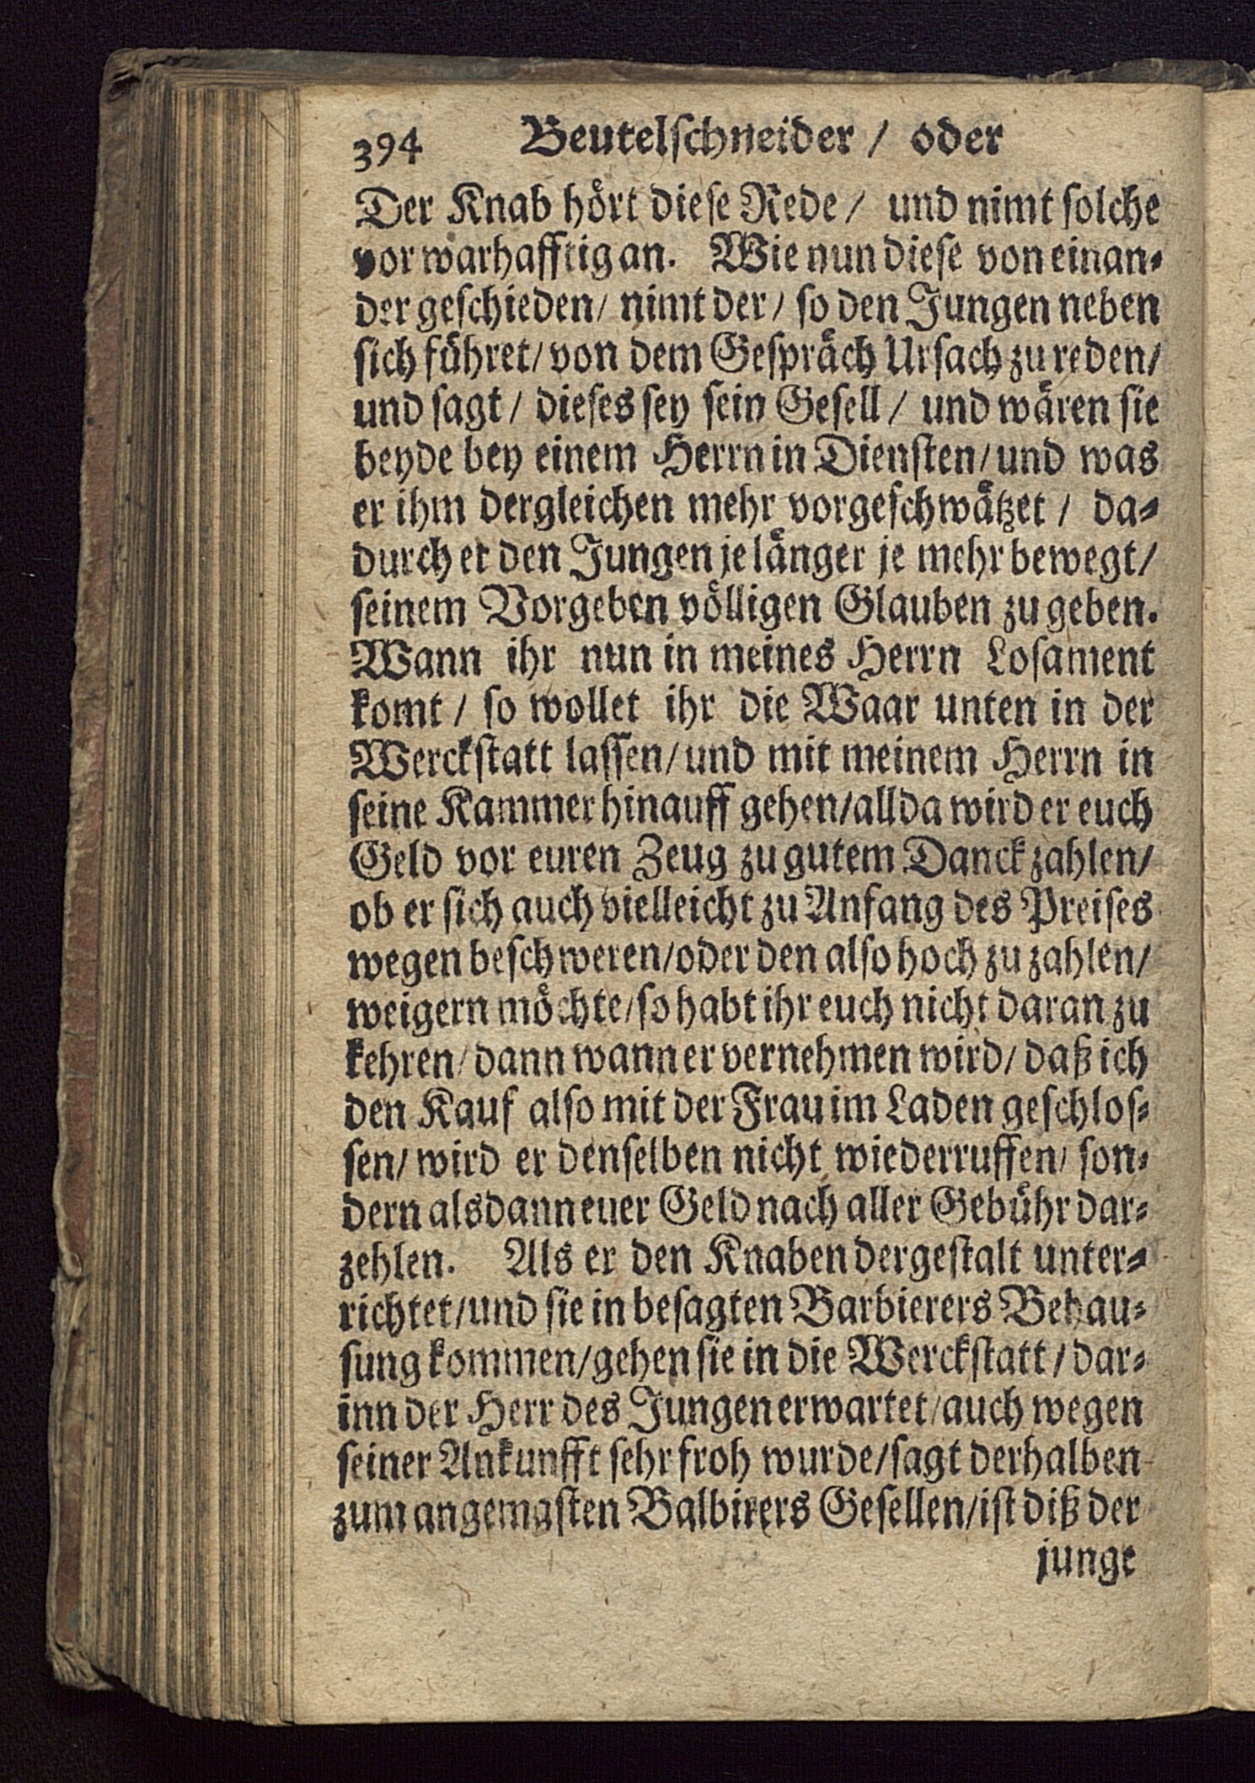 394 Beutelschneider / oder
Der Knab hört diese Rede / und nimt solche
vor warhafftig an. Wie nun diese von einan-
der geschieden / nimt der / so den Jungen neben
sich führet / von dem Gespräch Ursach zu reden /
und sagt / dieses sey sein Gesell / und wären sie
beyde bey einem Herrn in Diensten / und was
er ihm dergleichen mehr vorgeschwätzet / da-
durch er den Jungen je länger je mehr bewegt /
seinem Vorgeben völligen Glauben zu geben.
Wann ihr nun in meines Herrn Losament
komt / so wollet ihr die Waar unten in der
Werckstatt lassen / und mit meinem Herrn in
seine Kammer hinauff gehen / allda wird er euch
Geld vor euren Zeug zu gutem Danck zahlen /
ob er sich auch vielleicht zu Anfang des Preises
wegen beschweren / oder den also hoch zu zahlen /
weigern möchte / so habt ihr euch nicht daran zu
kehren / dann wann er vernehmen wird / daß ich
den Kauf also mit der Frau im Laden geschlos-
sen / wird er denselben nicht wiederruffen / son-
dern alsdann euer Geld nach aller Gebühr dar-
zehlen. Als er den Knaben dergestalt unter-
richtet / und sie in besagten Barbierers Behau-
sung kommen / gehen sie in die Werckstatt / dar-
inn der Herr des Jungen erwartet / auch wegen
seiner Ankunfft sehr froh wurde / sagt derhalben
zum angemasten Balbirers Gesellen / ist diß der
junge